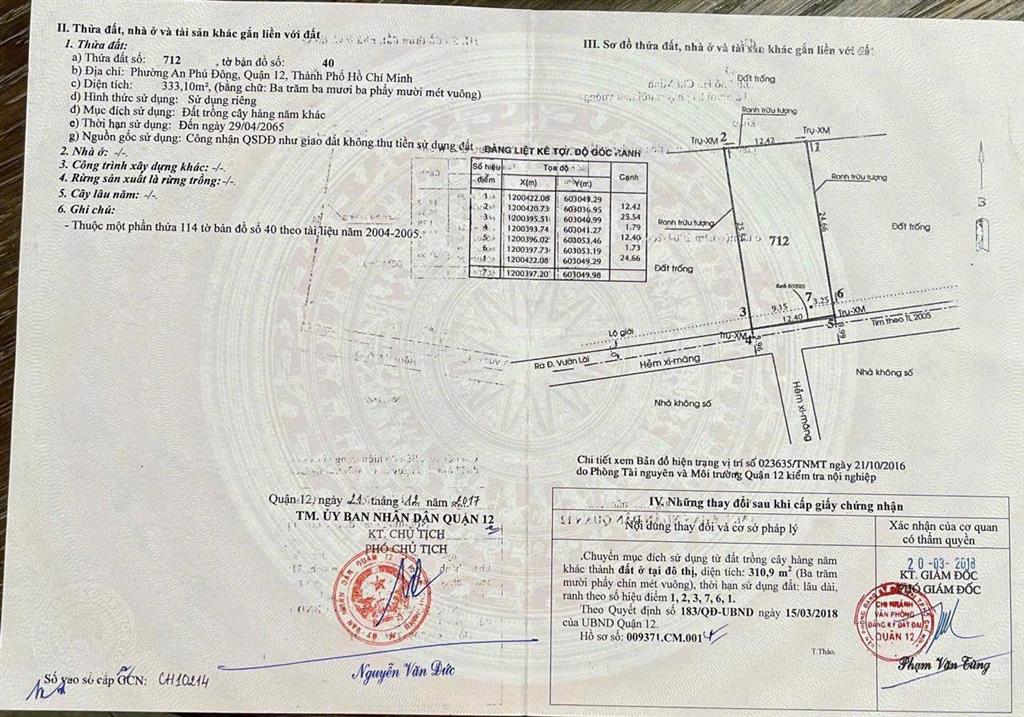 II. Thửa đất, nhà ở và tài sản khác gắn liền với đất
1. Thửa đất:
a) Thửa đất số: 712 , tờ bản đồ số: 40
b) Địa chỉ: Phường An Phú Đông, Quận 12, Thành Phố Hồ Chí Minh
c) Diện tích: 333,10m², (bằng chữ: Ba trăm ba mươi ba phẩy mười mét vuông)
d) Hình thức sử dụng: Sử dụng riêng
đ) Mục đích sử dụng: Đất trồng cây hàng năm khác
e) Thời hạn sử dụng: Đến ngày 29/04/2065
g) Nguồn gốc sử dụng: Công nhận QSDĐ như giao đất không thu tiền sử dụng đất
2. Nhà ở: -/-
3. Công trình xây dựng khác: -/-
4. Rừng sản xuất là rừng trồng: -/-.
5. Cây lâu năm: -/-
6. Ghi chú:
- Thuộc một phần thửa 114 tờ bản đồ số 40 theo tài liệu năm 2004-2005.
BẢNG LIỆT KÊ TỌA ĐỘ GÓC RANH
Số hiệu điểm Tọa độ Cạnh
X(m) Y(m)
1 1200422.08 603049.29
12.42
2 1200420.73 603036.95
25.54
3 1200395.51 603040.99
1.79
4 1200393.74 603041.27
12.40
5 1200396.02 603053.46
1.73
6 1200397.73 603053.19
24.66
1 1200422.08 603049.29
7 1200397.20 603049.98
Quận 12, ngày 21 tháng 12 năm 2017
TM. ỦY BAN NHÂN DÂN QUẬN 12
KT. CHỦ TỊCH
PHÓ CHỦ TỊCH
Nguyễn Văn Đức
Số vào sổ cấp GCN: CH10214
III. Sơ đồ thửa đất, nhà ở và tài sản khác gắn liền với đất
Đất trống
Ranh trừu tượng
Trụ-XM 2 12.42 1 Trụ-XM
Ranh trừu tượng
B
Ranh trừu tượng
25.54
24.66
712
Đất trống
Đất trống
7 3.25 6
3 9.15 12.40 5 Trụ-XM
Tim theo TL 2005
Lộ giới
Trụ-XM 4
3.96
3.99
Ra Đ. Vườn Lài
Hẻm xi-măng
Nhà không số
Hẻm xi-măng
Nhà không số
Chi tiết xem Bản đồ hiện trạng vị trí số 023635/TNMT ngày 21/10/2016
do Phòng Tài nguyên và Môi trường Quận 12 kiểm tra nội nghiệp
IV. Những thay đổi sau khi cấp giấy chứng nhận
Nội dung thay đổi và cơ sở pháp lý
Xác nhận của cơ quan
có thẩm quyền
Chuyển mục đích sử dụng từ đất trồng cây hàng năm
khác thành đất ở tại đô thị, diện tích: 310,9 m² (Ba trăm
mười phẩy chín mét vuông), thời hạn sử dụng đất: lâu dài,
ranh theo số hiệu điểm 1, 2, 3, 7, 6, 1.
Theo Quyết định số 183/QĐ-UBND ngày 15/03/2018
của UBND Quận 12.
Hồ sơ số: 009371.CM.001
T.Thảo.
20-03-2018
KT. GIÁM ĐỐC
PHÓ GIÁM ĐỐC
CHI NHÁNH
VĂN PHÒNG
ĐĂNG KÝ ĐẤT ĐAI
QUẬN 12
Phạm Văn Tùng